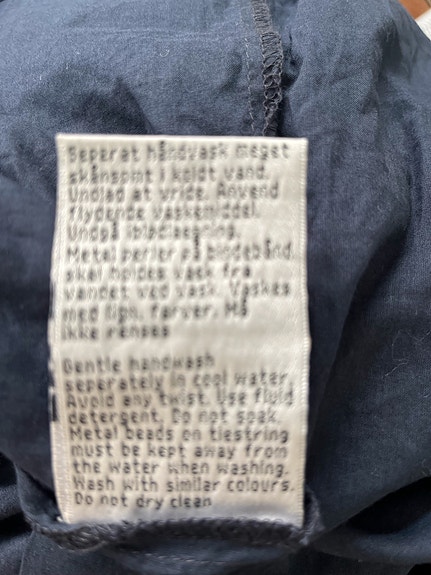 Seperat håndvask meget
skånsomt i koldt vand.
Undlad at vride. Anvend
flydende vaskemiddel.
Undgå iblødlægning.
Metal perler på bindebånd
skal holdes væk fra
vandet ved vask. Vaskes
med lign. farver. Må
ikke renses
Gentle handwash
seperately in cool water.
Avoid any twist. Use fluid
detergent. Do not soak.
Metal beads on tiestring
must be kept away from
the water when washing.
Wash with similar colours.
Do not dry clean